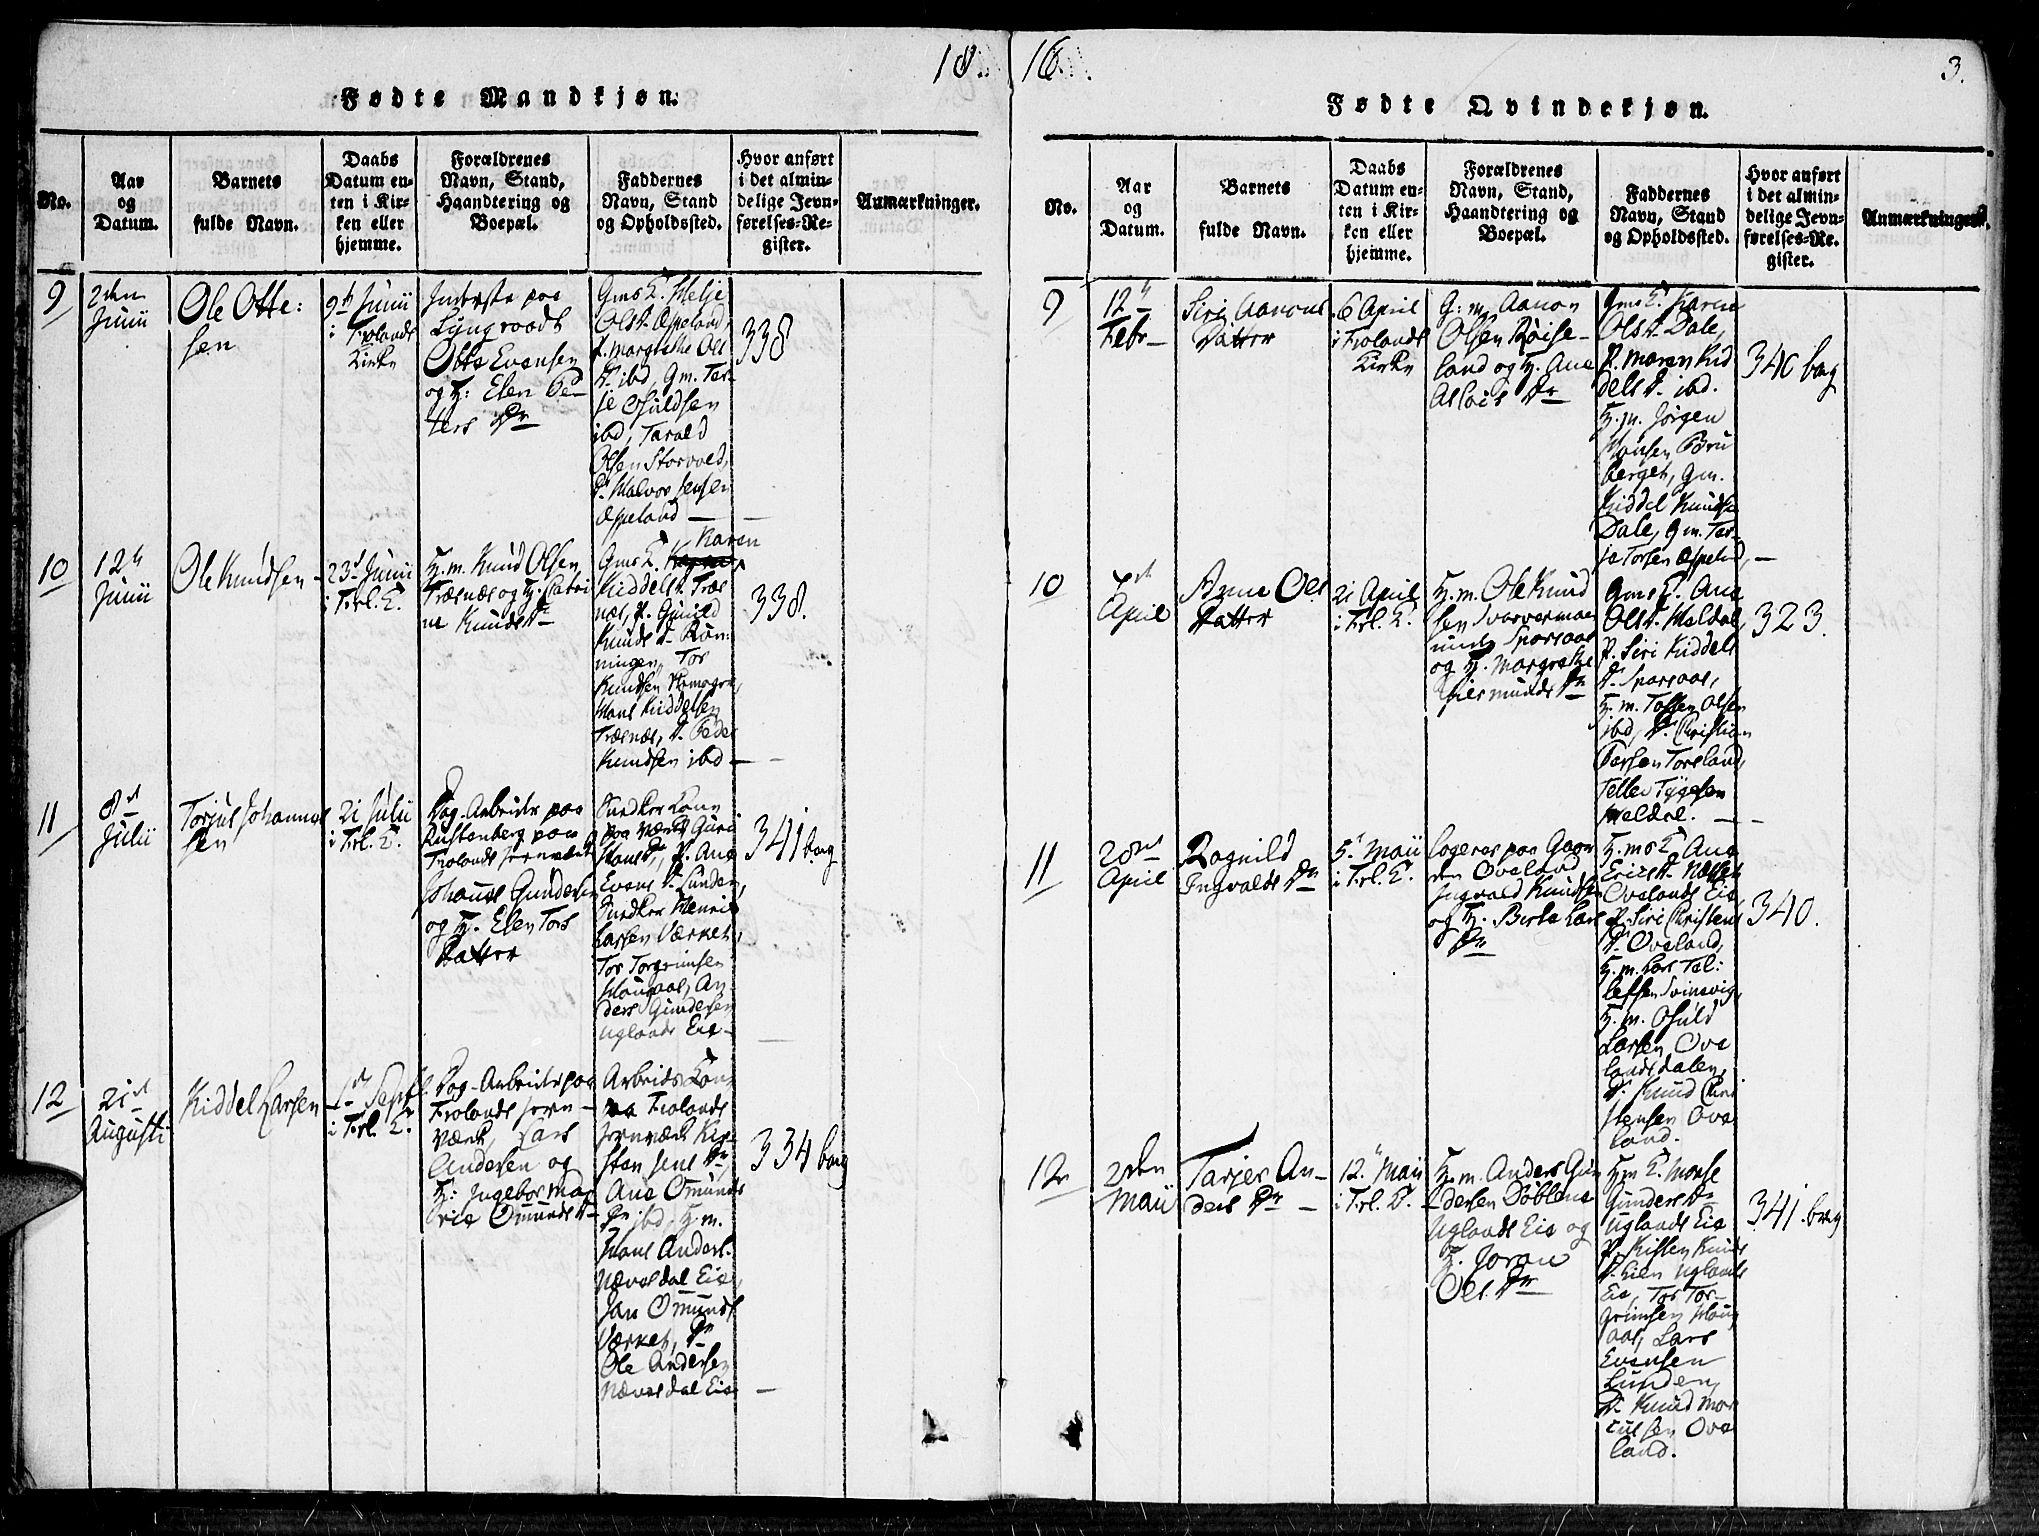 18
Fødte Mandkjøn.
No.
Aar
og
Datum.
Barnets
fulde Navn.
Daabs
Datum en-
ten i Kir-
ken eller
hjemme.
Forældrenes
Navn, Stand,
Haandtering og
Boepæl.
Faddernes
Navn, Stand
og Opholdssted.
Hvor anført
i det almin-
delige Jevn-
førelses-Re-
gister.
Anmærkninger.
9
2den
Junii
Ole Otte:
sen
9d Junii
i Frolands
Kirke
Inderste paa
Lyngroodt
Otte Evensen
og H: Elen Pe-
ters Dr
Gms K. Helje
Ols D. Espeland,
P. Margrethe Ols
D. ibd, Gm. Ter-
je Osuldsen
ibd, Tarald
Olsen Storvold,
D. Halvor Jensen
Espeland
338
10
12te
Junii
Ole Knudsen
23d Junii
i Frl. K.
H. m. Knud Olsen
Træenæs og H. Cathri
ne Knuds D
Karen
Gms K.
Kiddels D. Træe
næs, P. Gunild
Knuds D. Røn-
ningen, Tor
Knudsen
Hans Kiddelsen
Træenæs, D. Peder
Knudsen ibd
338.
11
8d
Julii
Torjus Johannes
sen
21 Julii
i Frl. K.
Dag-Arbeider paa
Rustenberg paa
Frolands Jernværk
Johannes Gundersen
og H. Elen Tors
Datter
Smedker Kone
paa Værket Guri
Hans Dr, P. Ane
Evens D. Lunden,
Smedker Henrik
Larsen Værket,
Tor Torgrimsen
Hougaas, An-
ders Gundersen
Uglands Eie
341 bag
12
21d
Augusti
Kiddel Larsen
1d Septl.
i Frl. K.
Dag-Arbeider paa
Frolands Jern-
værk, Lars
Andersen og
H: Ingebor Ma-
rie Omunds D
Arbeids Kone
paa Frolands
Jernværk Kir-
sten Jens Dr
Ane Omunds
Dr ibd, H. m.
Hans Anders.
Nævesdal Eie,
Jan Omunds.
Værket, D
Ole Andersen
Nævesdal Eie
334 bag
16
3.
Fødte Qvindekjøn.
No.
Aar
og
Datum.
Barnets
fulde Navn.
Daabs
Datum en-
ten i Kir-
ken eller
hjemme.
Forældrenes
Navn, Stand,
Haandtering og
Boepæl.
Faddernes
Navn, Stand
og Opholdssted.
Hvor anført
i det almin-
delige Jevn-
førelses-Re-
gister.
Anmærkninger.
9
12te
Febr
Siri Aanons
Datter
6 April
i Frolands
Kirke
G: m. Aanon
Olsen Røise-
land og H. Ane
Asloies Dr
Gms K. Karen
Ols D. Dale,
P. Maren Kid
dels D. ibd.
H. m. Jørgen
Hansen Bru
berget, Gm.
Kiddel Knudse
Dale, Gm. Ter-
je Torsen Espeland,
340 bag
10
7d
April
Anne Ols
Datter
21 April
i Frl. K.
H. m. Ole Knud
sen Svarverman
under Sparsaas
og H. Margrethe
Giermunds Dr
Gms K. Ane
Ols D. Heldal,
P. Siri Kiddels
D. Sparsaas,
H. m. Tosten Olsen
ibd, D. Christian
Persen Toreland,
Tellev Tygesen
Heldal.
323.
11
20de
April
Ragnild
Ingvalds Dr
5. Maii
i Frl. K.
logeres paa Gaar
den Oveland
Ingvald Knudsen
og H. Birte Lars
Dr
H. ms K. Ane
Erics D. Næsset
Ovelands Eie,
P. Siri Christens
D. Oveland,
H. m. Lars Tel:
lefsen Svinevig,
H. m. Osuld
Larsen Ove
landsdalen,
D. Knud Chri
stensen Ove
land.
340.
12
2den
Maii
Tarjer An-
ders Dr
12. Maii
i Frl. K.
H. m. Anders Gun
dersen Doblene
Uglands Eie og
H. Joran
Ols. Dr
Hm K.
Gunders Dr
Uglands Eie
P. Kisten Knuds
D. Lien Uglands
Eie, Tor Tor-
grimsen Houg
aas, Lars
Evensen
Lunden,
D. Knud Mar
cussen Ove
land.
341. bag